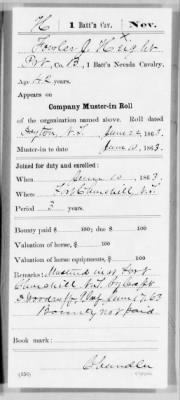 H | 1 Batt'n Cav. | Nev.
Fowler A. Height
Pvt, Co. B, 1 Batt'n Nevada Cavalry.
Age 42 years.
Appears on
Company Muster-in Roll
of the organization named above. Roll dated
Dayton, N.T. June 22, 1863.
Muster-in to date June 10, 1863.
Joined for duty and enrolled:
When June 10, 1863.
Where Ft Churchill N.T.
Period 3 years.
Bounty paid $ 100; due $ 100
Valuation of horse, $ 100
Valuation of horse equipments, $ 100
Remarks: Mustered in at Fort
Churchill N.T. by Capt
June 17, 63
Bounty not paid.
Book mark:
Chandler
(356) Copyist.